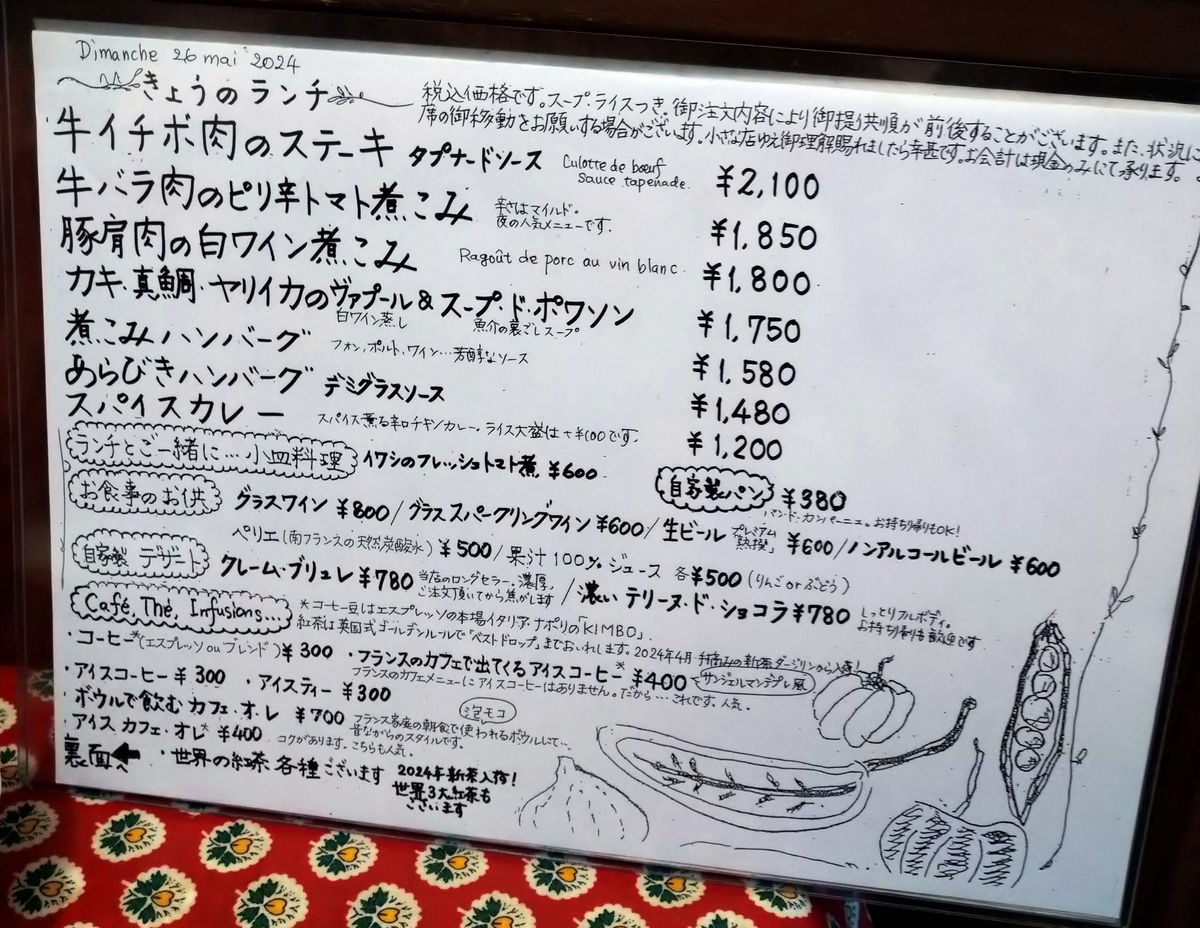 Dimanche 26 mai 2024
きょうのランチ
税込価格です。スープ・ライスつき。御注文内容により御提供順が前後することがございます。また、状況に
席の御移動をお願いする場合がございます。小さな店ゆえ御理解賜れましたら幸甚です。お会計は現金のみにて承ります。
牛イチボ肉のステーキ タプナードソース Culotte de bœuf sauce tapenade. ¥2,100
牛バラ肉のピリ辛トマト煮こみ 辛さはマイルド。夜の人気メニューです。 ¥1,850
豚肩肉の白ワイン煮こみ Ragoût de porc au vin blanc. ¥1,800
カキ・真鯛・ヤリイカのヴァプール & スープ・ド・ポワソン ¥1,750
白ワイン蒸し 魚介の裏ごしスープ
煮こみハンバーグ フォン、ポルト、ワイン…芳醇なソース ¥1,580
あらびきハンバーグ デミグラスソース ¥1,480
スパイスカレー スパイス薫る辛口チキンカレー。ライス大盛は+¥100です。 ¥1,200
ランチとご一緒に…小皿料理 イワシのフレッシュトマト煮 ¥600
自家製パン ¥380
パン・ド・カンパーニュ。お持ち帰りもOK!
お食事のお供 グラスワイン ¥800/グラススパークリングワイン ¥600/生ビール プレミアム「熱撰」 ¥600/ノンアルコールビール ¥600
ペリエ(南フランスの天然炭酸水) ¥500/果汁100%ジュース 各¥500(りんご or ぶどう)
自家製 デザート クレーム・ブリュレ ¥780 当店のロングセラー。濃厚。ご注文頂いてから焦がします/濃い テリーヌ・ド・ショコラ ¥780 しっとりフルボディ。お持ち帰りも歓迎です
Café, Thé, Infusions... *コーヒー豆はエスプレッソの本場イタリア・ナポリの「KIMBO」.
紅茶は英国式ゴールデンルールで「ベストドロップ」までおいれします。2024年4月 手摘みの新茶ダージリンから入荷!
・コーヒー*(エスプレッソ ou ブレンド) ¥300 ・フランスのカフェで出てくるアイスコーヒー* ¥400 サンジェルマンデプレ風
フランスのカフェメニューにアイスコーヒーはありません。だから…これです。人気。
・アイスコーヒー ¥300 ・アイスティー ¥300
・ボウルで飲むカフェ・オ・レ ¥700 フランス家庭の朝食で使われるボウルにて…昔ながらのスタイルです。 泡モコ
・アイス カフェ・オレ* ¥400 コクがあります。こちらも人気。
裏面へ ・世界の紅茶 各種ございます 2024年新茶入荷!
世界3大紅茶も
ございます